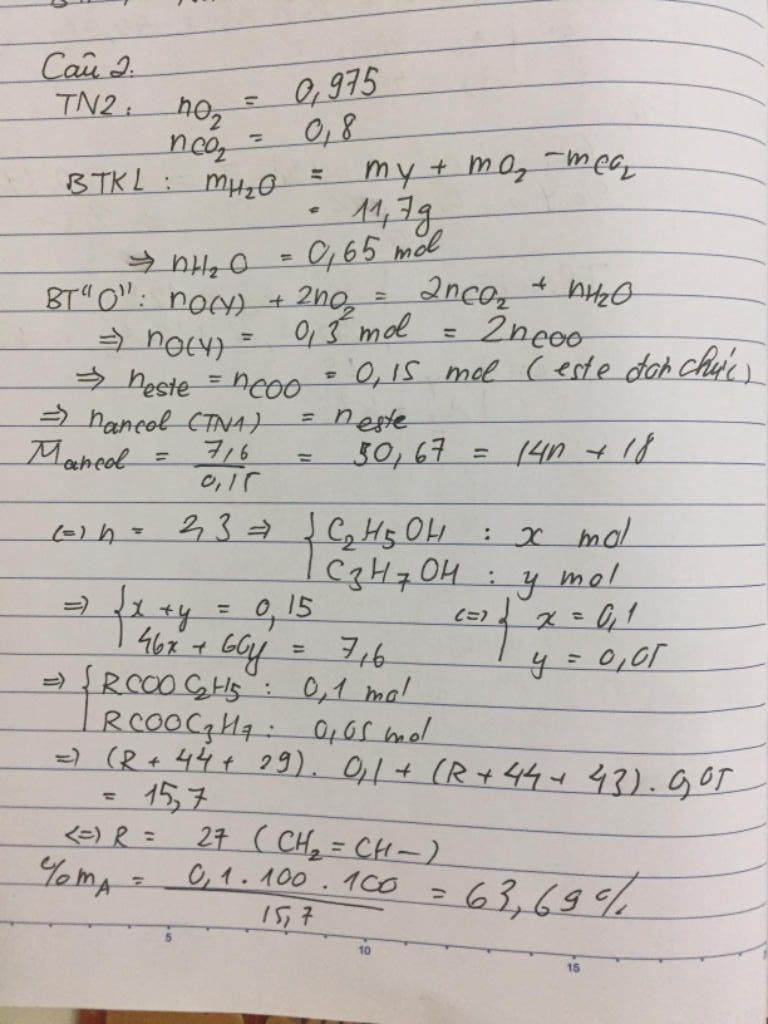 Câu 2.
TN2: nO₂ = 0,975
nCO₂ = 0,8
BTKL: mH₂O = mY + mO₂ - mCO₂
= 11,7g
⇒ nH₂O = 0,65 mol
BT"O": nO(Y) + 2nO₂ = 2nCO₂ + nH₂O
⇒ nO(Y) = 0,3 mol = 2nCOO
⇒ neste = nCOO = 0,15 mol (este đơn chức)
⇒ nancol (TN1) = neste
M̅ancol = 7,6 / 0,15 = 50,67 = 14n + 18
(=) n = 2,3 ⇒ { C₂H₅OH : x mol
C₃H₇OH : y mol
⇒ { x + y = 0,15 (=) { x = 0,1
46x + 60y = 7,6 y = 0,05
⇒ { RCOOC₂H₅ : 0,1 mol
RCOOC₃H₇ : 0,05 mol
=) (R + 44 + 29). 0,1 + (R + 44 + 43). 0,05
= 15,7
<=) R = 27 (CH₂ = CH -)
%mA = 0,1 . 100 . 100 / 15,7 = 63,69 %
5 10 15